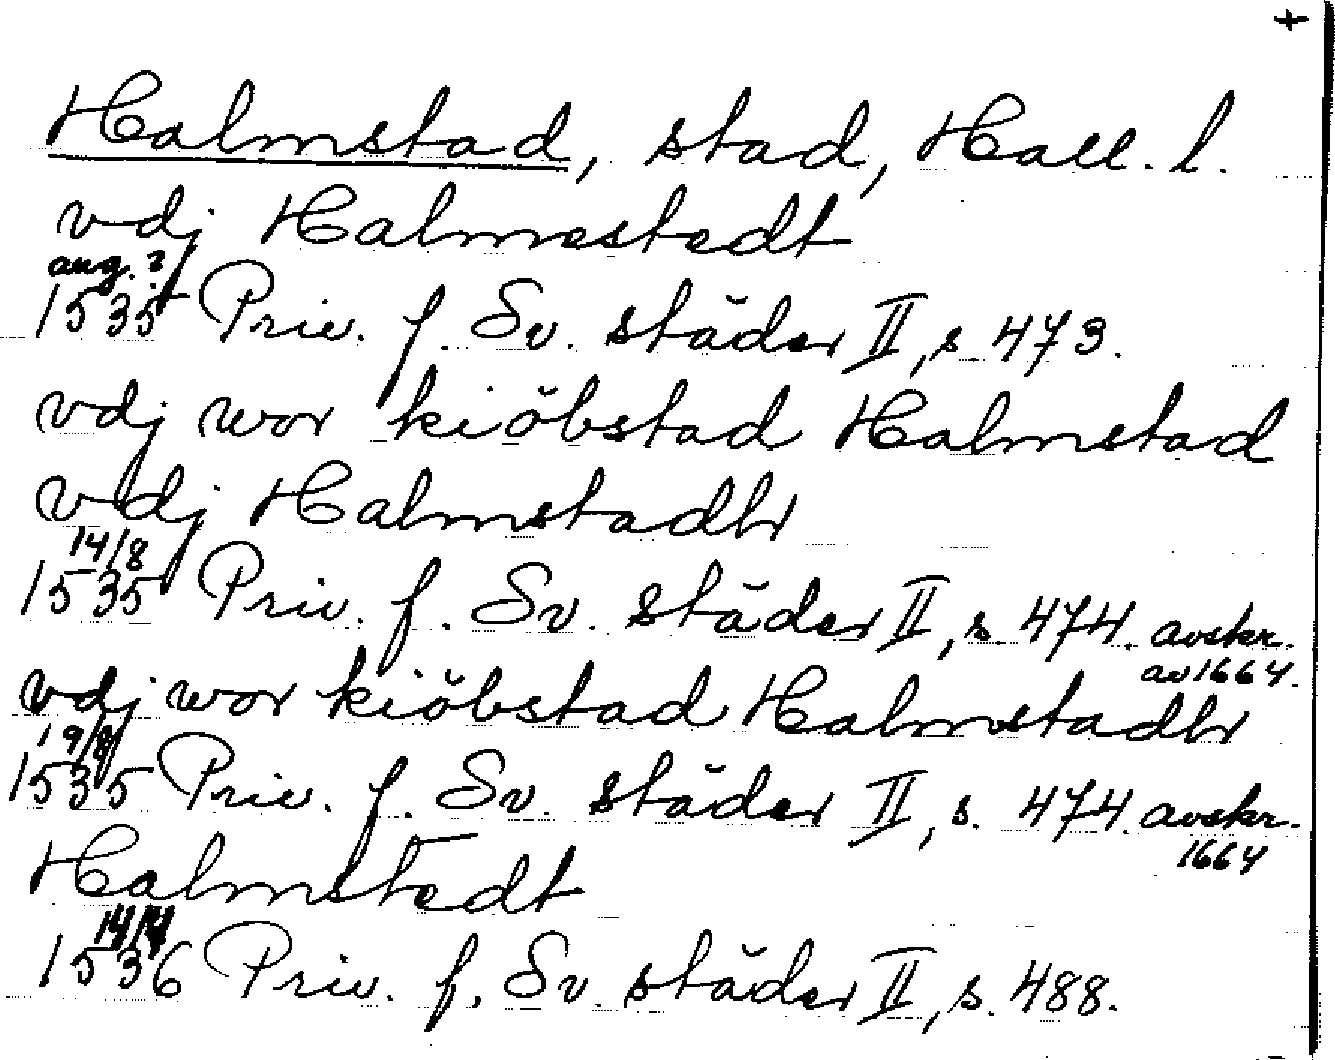 +
Halmstad, stad, Hall. l.
vdj Halmestedt
aug. ?
1535 Priv. f. Sv. städer II, s. 473.
vdj wor kiöbstad Halmstad
vdj Halmstadh
14/8
1535 Priv. f. Sv. städer II, s. 474. avskr.
av 1664.
vdj wor kiöbstad Halmstadh
19/8
1535 Priv. f. Sv. städer II, s. 474. avskr.
1664
Halmstedt
14/4
1536 Priv. f. Sv. städer II, s. 488.